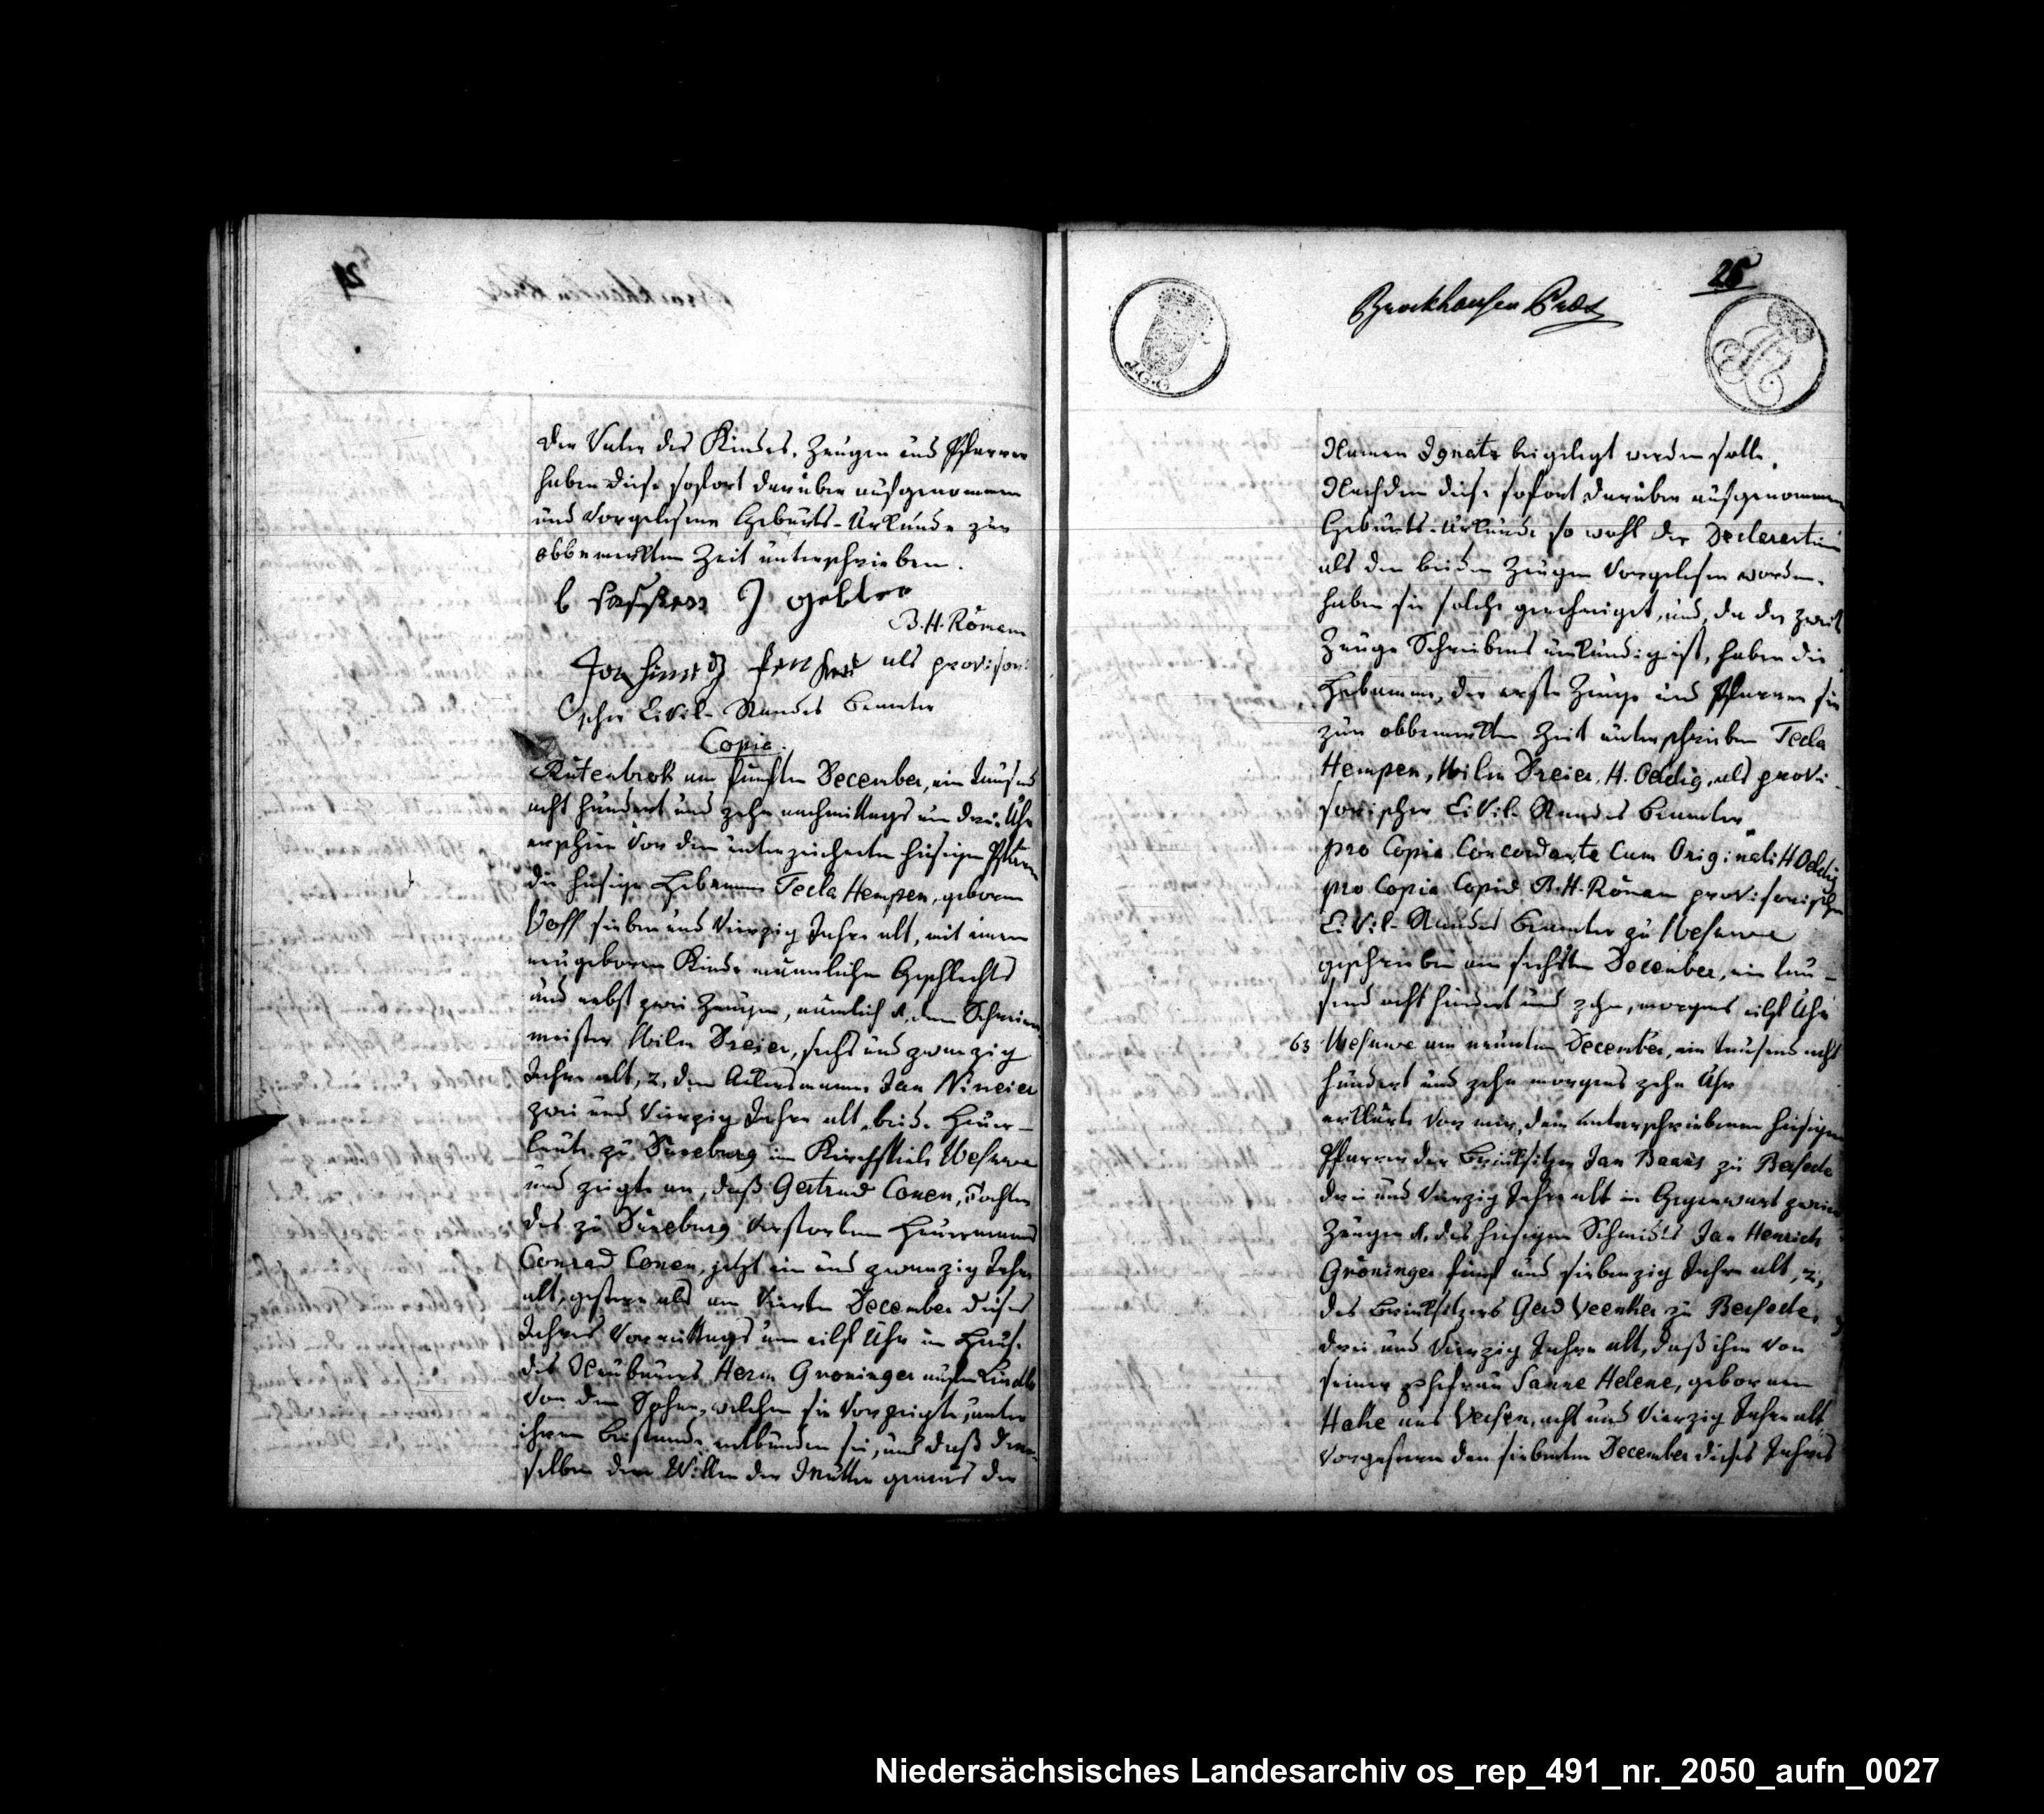 der Vater des Kindes, Zeugen und Pfarrer
haben diese sofort darüber aufgenommene
und vorgelesene Geburts-Urkunde zur
obbemerkten Zeit unterschrieben.
J gebber
B. H. Römann
als provisori
scher Civil-Standes Beamter
Copia.
Rütenbrok am fünften December, ein tausend
acht hundert und zehn nachmittags um drei Uhr
erschien vor dem unterzeichneten hiesigen Pfarrer
die hiesige Hebamme Tecla Hempen, geborne
Voss sieben und vierzig Jahre alt, mit einem
neugebornen Kinde männlichen Geschlechts
und nebst zwei Zeugen, nämlich 1, dem Schreiner
meister Wilm Dreier, sechs und zwanzig
Jahre alt, 2, dem Ackersmanne Jan Nimeier
zwei und vierzig Jahre alt, beide Heuer-
leute zu Düneburg im Kirchspiele Wesuwe
und zeigte an, daß Gertrud Conen, Tochter
des zu Düneburg verstorbenen Heuermanns
Conrad Conen, jetzt ein und zwanzig Jahre
alt, gestern als am vierten December dieses
Jahres vormittags um eilf Uhr im Hause
des Neubauers Herm Groninger aufm Lindlo
von dem Sohne, welchen sie vorzeigte, unter
ihrem Beistande entbunden sei, und daß dem-
selben dem Willen der Mutter gemäs der
25
Brockhausen
J.G.G
Namen Ignatz beigelegt werden solle.
Nachdem diese sofort darüber aufgenommene
Geburts-Urkunde so wohl der Declarantinn
als den beiden Zeugen vorgelesen worden,
haben sie solche genehmiget, und, da der zweite
Zeuge Schreibens unkundig ist, haben die
Hebamme, der erste Zeuge und Pfarrer sie
zur obbemerkten Zeit unterschrieben Tecla
Hempen, Wilm Dreier, H. Oeldig, als provi-
sorischer Civil-Standes Beamter
pro Copia Concordante cum Originali H Oeldig
pro Copia Copiae B. H. Römann provisorischer
Civil-Standes Beamter zu Wesuwe
geschrieben am sechsten December, ein tau-
send acht hundert und zehn, morgens eilf Uhr
63 Wesuwe am neunten December, ein tausend acht
hundert und zehn morgens zehn Uhr
erklärte vor mir, dem unterschriebenen hiesigen
Pfarrer der Brinksitzer Jan Baans zu Versede
drei und vierzig Jahre alt in Gegenwart zweier
Zeugen 1, des hiesigen Schmides Jan Henrich
Gröninger fünf und siebenzig Jahre alt, 2,
des Brinksitzers Gerd Veenker zu Bersede,
drei und vierzig Jahre alt, daß ihm von
seiner Ehefrau Sanne Helene, gebornen
Hake aus Versen, acht und vierzig Jahre alt
vorgestern den siebenten December dieses Jahres
Niedersächsisches Landesarchiv os_rep_491_nr._2050_aufn_0027